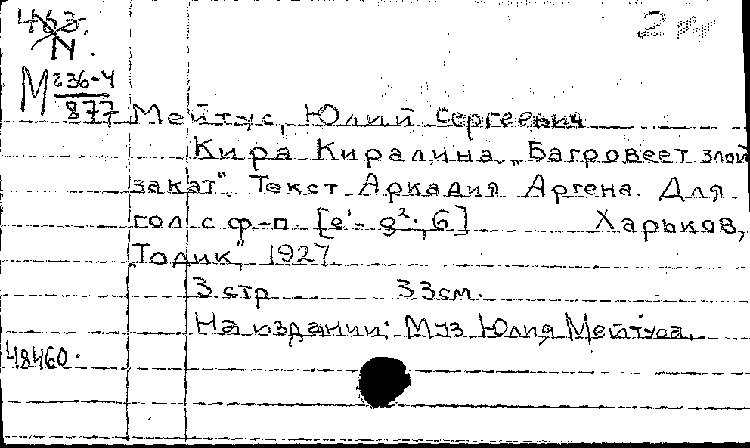 463.
N.
М 236-4
877
Мейтус, Юлий Сергеевич
Кира Киралина „Багровеет злой
закат". Текст Аркадия Аргена. Для
гол с ф-п. [e¹- g²; G] Харьков,
„Тодик", 1927
3 стр 33см.
На издании: Муз Юлия Мейтуса.
48460.